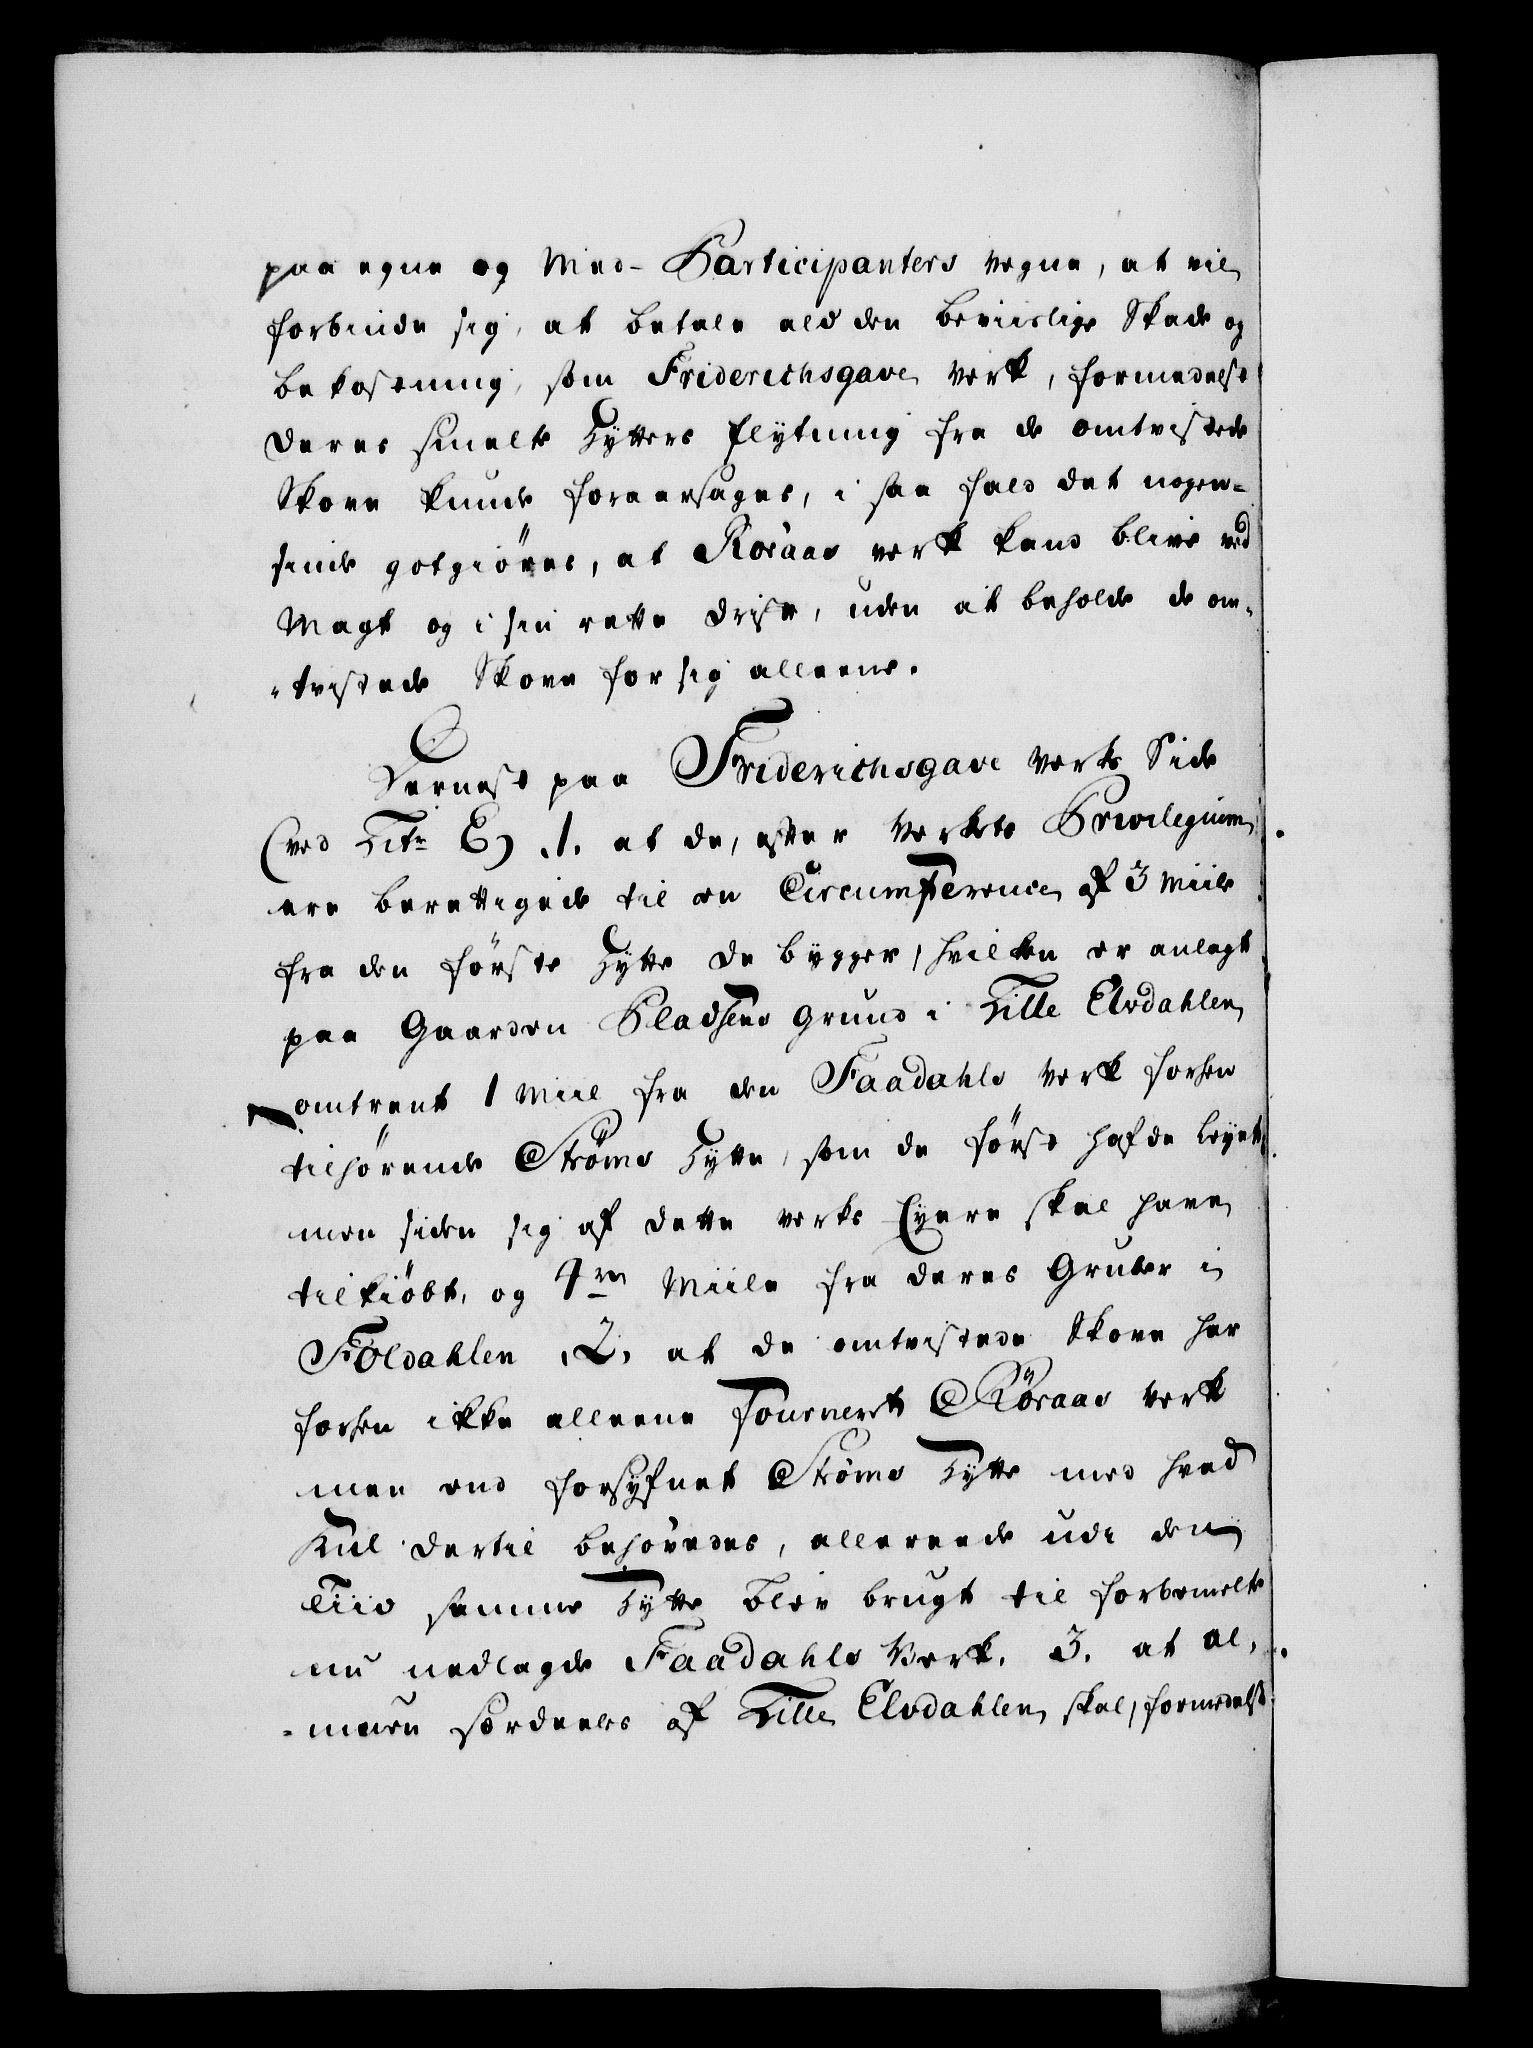 paa egne og Med-Participanters vegne, at vil
forbinde sig, at betale ald den beviislige Skade og
bekostning, som Friderichsgave verk, formedelst
deres smelte Hytters flytning fra de omtvistede
Skove kunde foraarsages, i saa fald det nogen-
sinde gotgiöres, at Röraas verk kand blive ved
Magt og i sin rette drift, uden at beholde de om-
-tvistede Skove for sig alleene.
Dernest paa Friderichsgave verks Side
(ved Litr E) .1. at de, efter Verkets Privilegium
ere berettigede til en Circumference af 3 Miile
fra den förste Hytte de bygger, hvilken er anlagt
paa Gaarden Pladsens grund i Lille Elvdahlen
omtrent 1 Miil fra den Faadahls verk forhen
tilhörende Ströms Hytte, som de först hafde leyet
men siden sig af dette verks Eyere skal have
tilkiöbt, og 4re Miile fra deres Gruber i
Foldahlen .2. at de omtvistede Skove har
forhen ikke alleene fourneret Röraas verk
men end forsyfnet Ströms Hytte med hvad
Kul dertil behövedes, allereede udi den
Tiid samme Hytte blev brugt til forbemelte
nu nedlagde Faadahls Verk. 3. at al-
-muen særdeeles af Lille Elvdahlen skal, formedelst